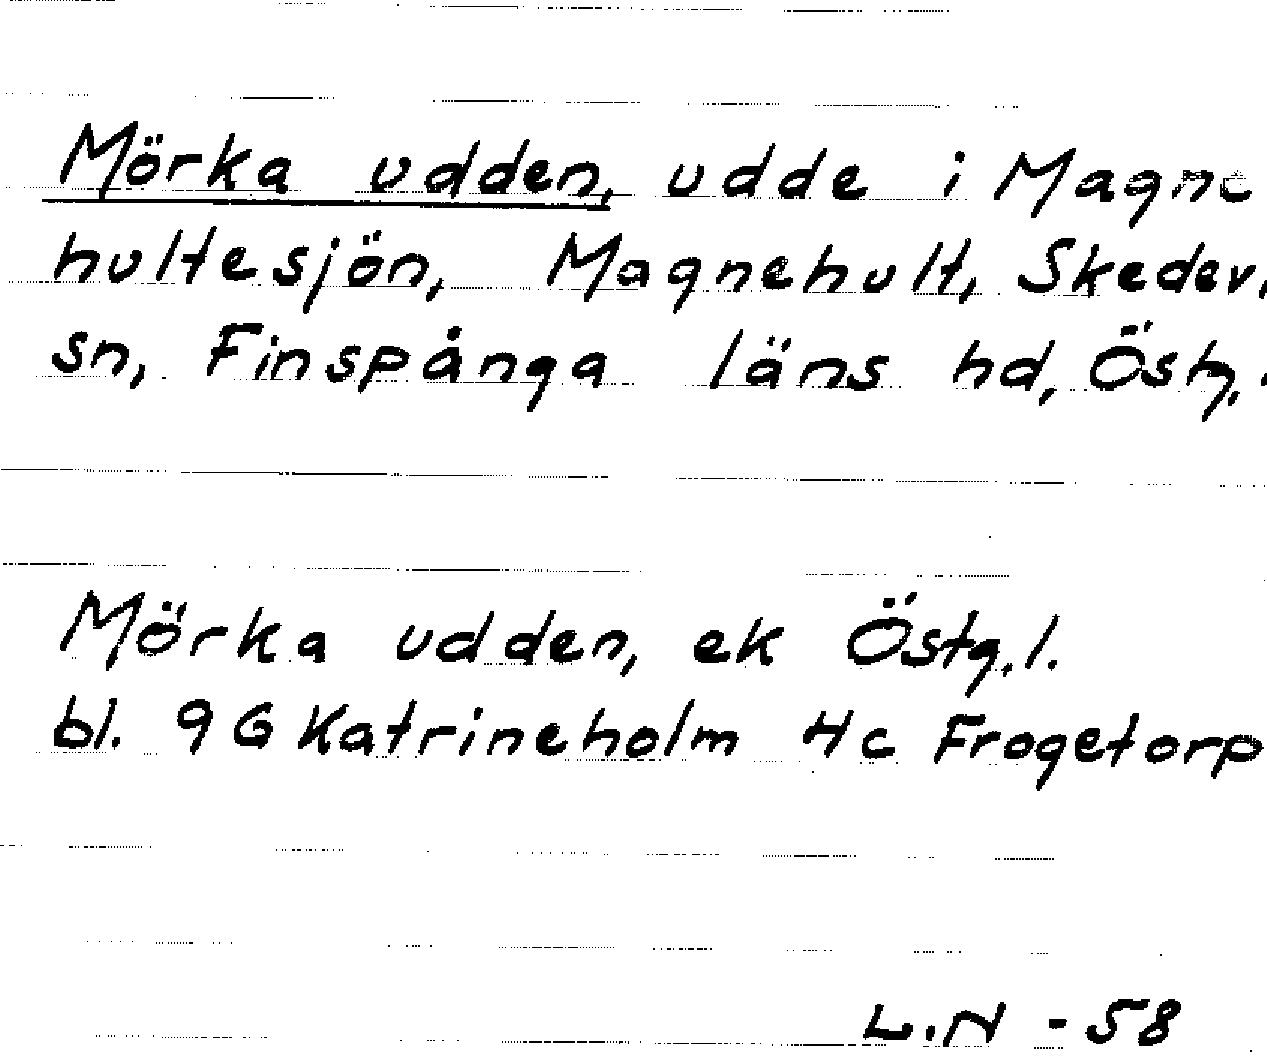 Mörka udden, udde i Magne
hultesjön, Magnehult, Skedev.
sn, Finspånga läns hd, Östg.
Mörka udden, ek Östg.l.
bl. 9 G Katrineholm 4c Frogetorp
L.N - 58